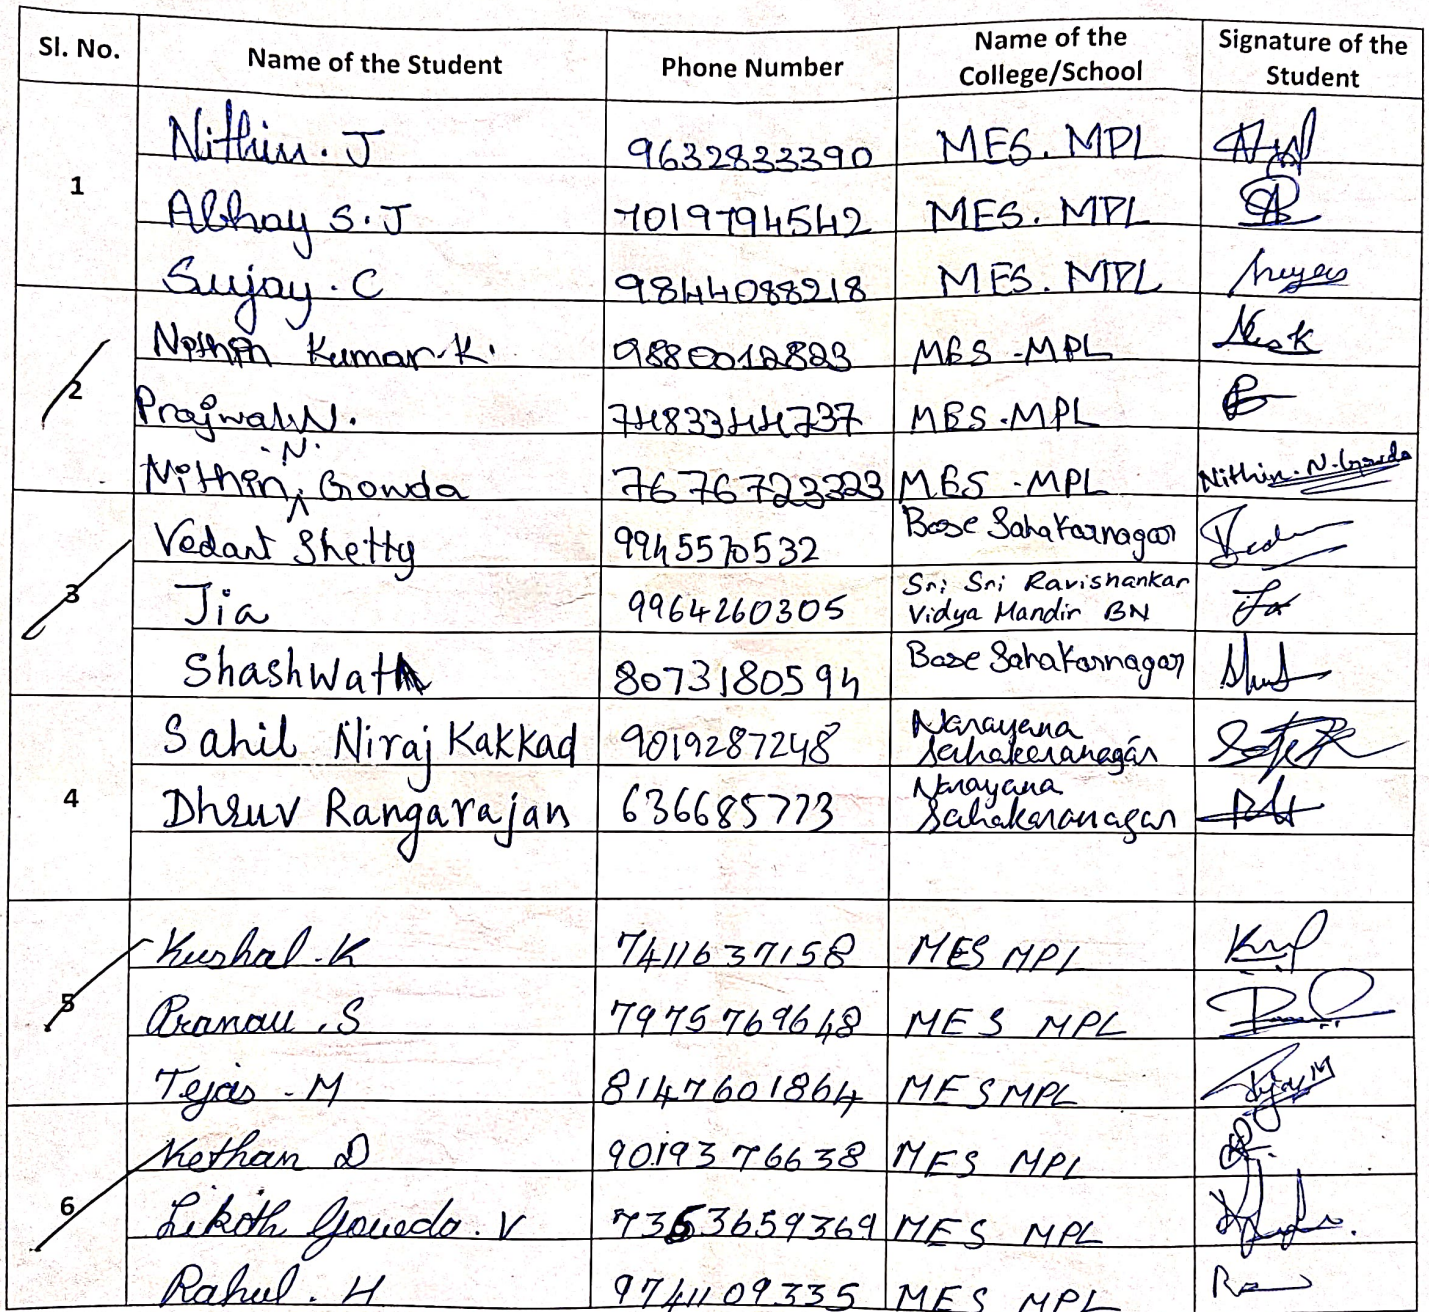 Sl. No. Name of the Student Phone Number Name of the College/School Signature of the Student
1
Nithin. J 9632833390 MES. MPL
Abhay S. J 7019794542 MES. MPL
Sujay. C 9844088218 MES. MPL
2
Nithin Kumar. K. 9880012823 MES -MPL
Prajwal N. 7483344737 MES -MPL
Nithin N. Gowda 7676723323 MES -MPL Nithin. N. Gowda
3
Vedant Shetty 9945570532 Base Sahakarnagar
Jia 9964260305 Sri Sri Ravishankar Vidya Mandir BN
Shashwath 8073180594 Base Sahakarnagar
4
Sahil Niraj Kakkad 9019287248 Narayana Sahakaranagar
Dhruv Rangarajan 636685773 Narayana Sahakaranagar
5
Kushal. K 7411637158 MES MPL
Pranav. S 7975769648 MES MPL
Tejas. M 8147601864 MES MPL
6
Kethan D 9019376638 MES MPL
Likith Gowda. V 7353659369 MES MPL
Rahul. H 9741109335 MES MPL